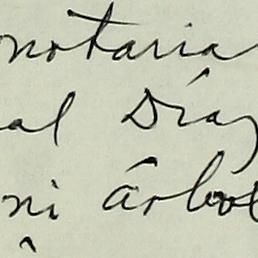 onotaria
al Díaz
ni árbol